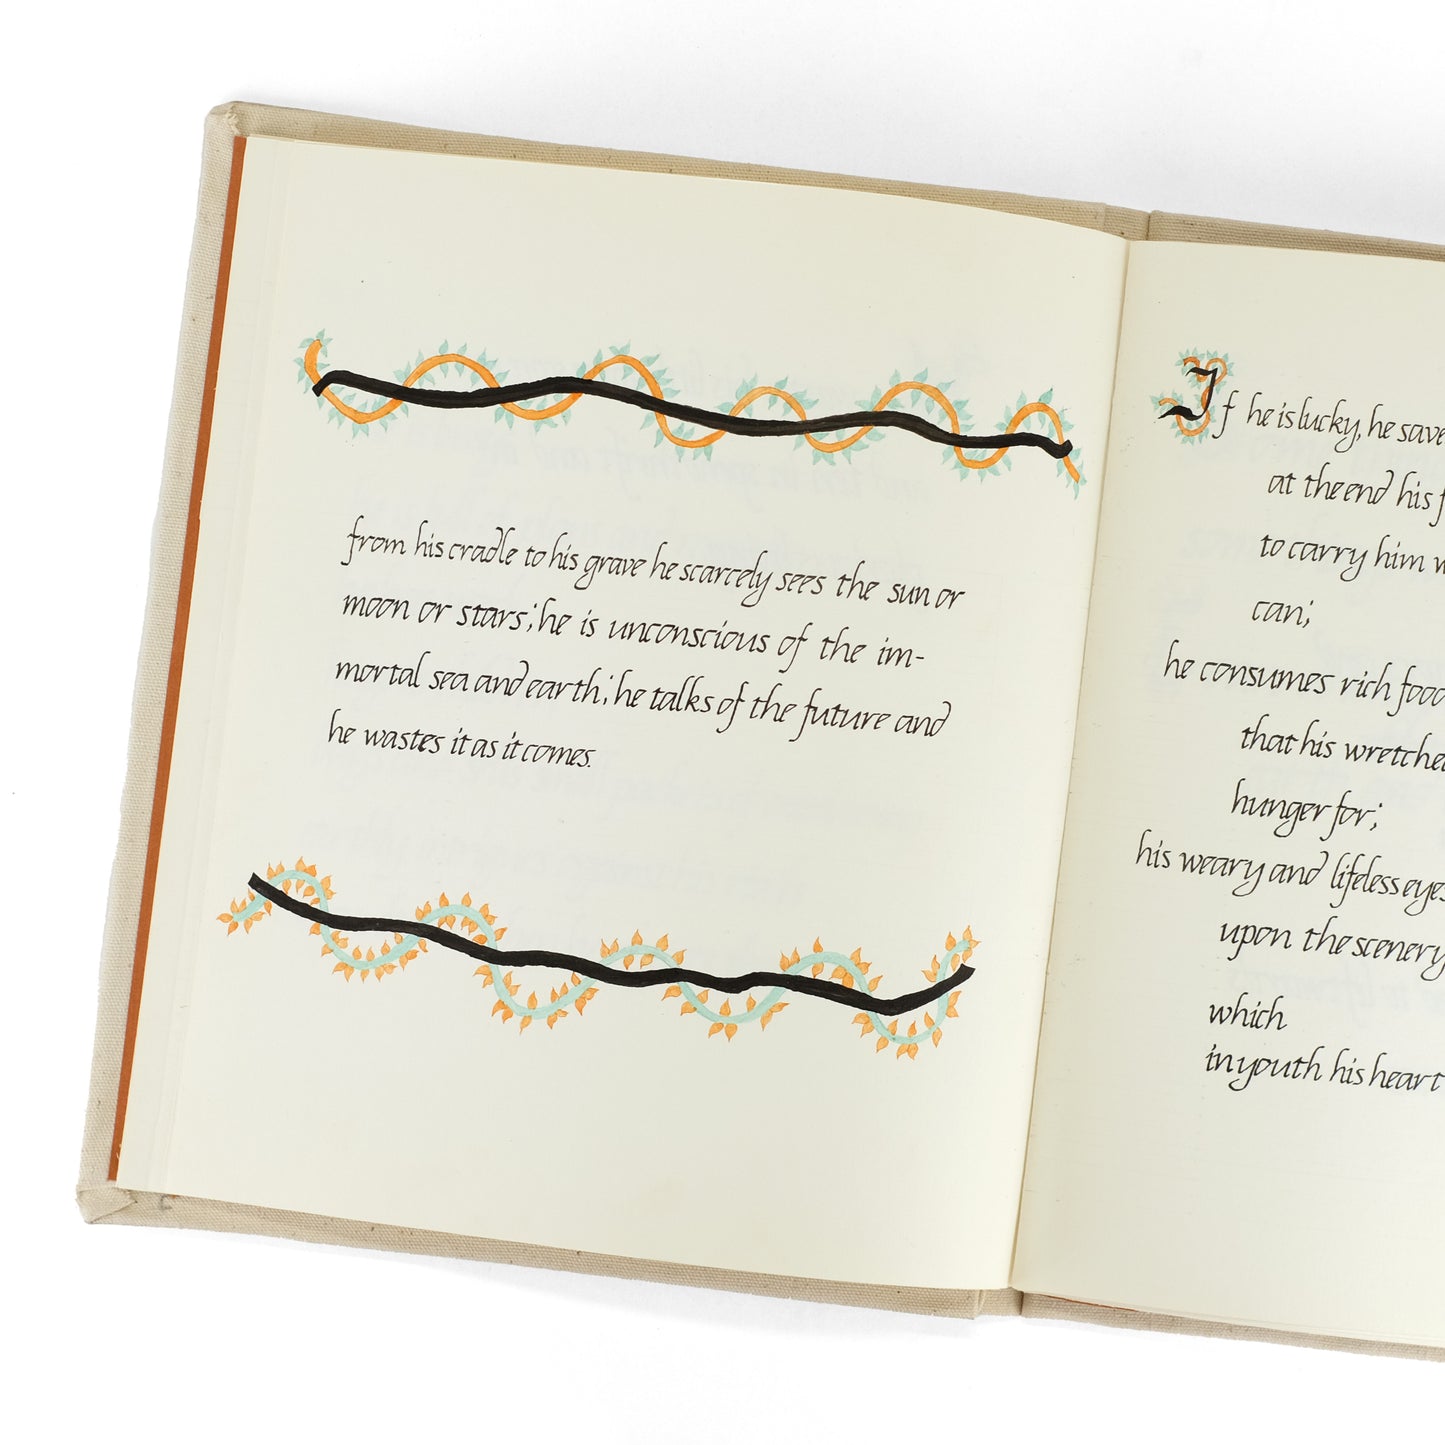 from his cradle to his grave he scarcely sees the sun or
moon or stars; he is unconscious of the im-
mortal sea and earth; he talks of the future and
he wastes it as it comes.
If he is lucky, he save
at the end his f
to carry him w
can;
he consumes rich food
that his wretche
hunger for;
his weary and lifeless eyes
upon the scenery
which
in youth his heart